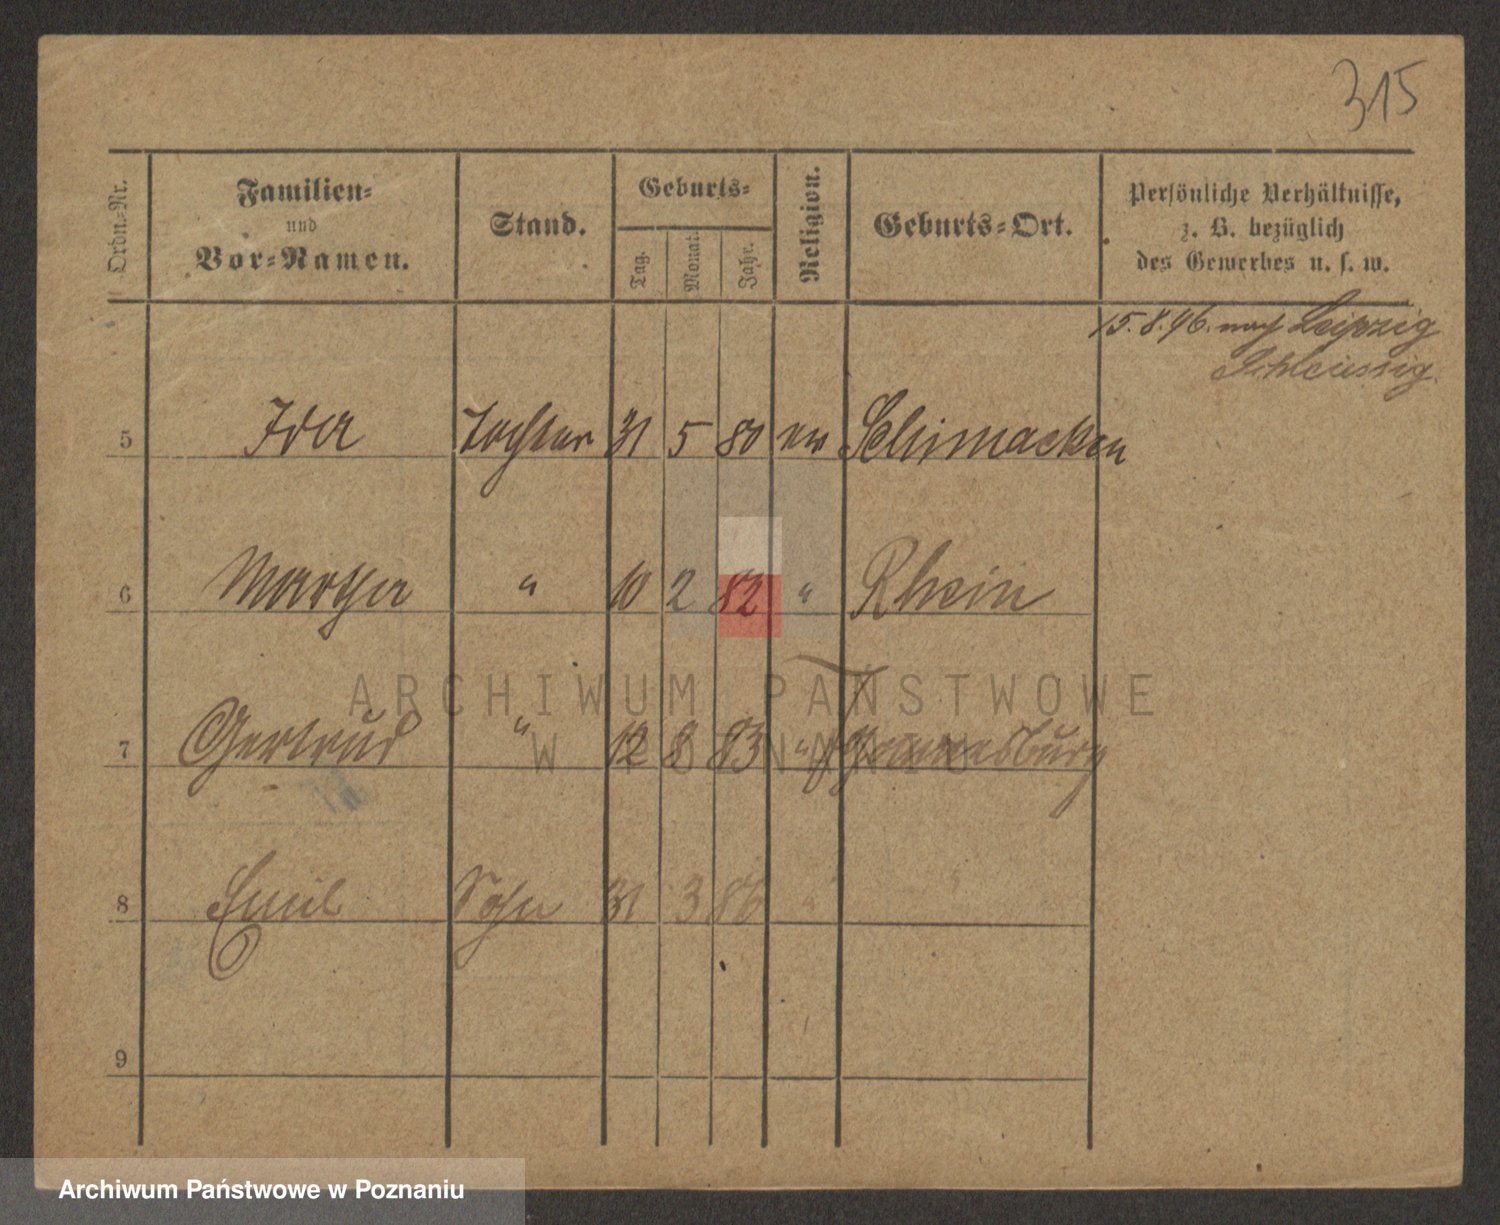 315
Ordn.-Nr.
Familien-
und
Vor-Namen.
Stand.
Geburts-
Tag.
Monat.
Jahr.
Religion.
Geburts-Ort.
Persönliche Verhältnisse,
z. B. bezüglich
des Gewerbes u. s. w.
15.8.96. nach Leipzig
Schleussig.
5 Ida Tochter 31 5 80 ev Schimacken
6 Martha " 10 2 82 " Rhein
7 Gertrud " 12 8 83 "
8 Emil Sohn 31 3 86 " "
9
ARCHIWUM PAŃSTWOWE
W POZNANIU
Archiwum Państwowe w Poznaniu